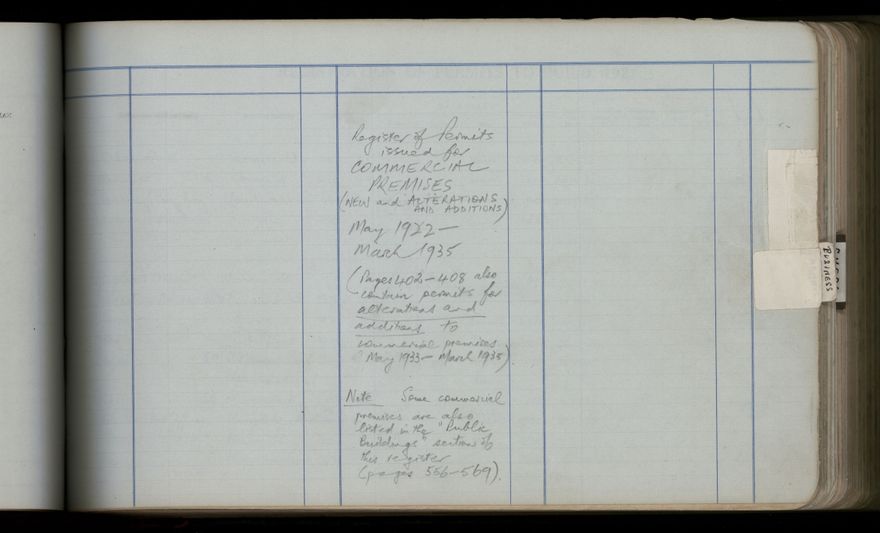 Register of Permits
issued for
COMMERCIAL
PREMISES
(NEW and ALTERATIONS
AND ADDITIONS)
May 1922 -
March 1935
(Pages 402 - 408 also
contain permits for
alterations and
additions to
commercial premises
May 1933 - March 1935)
Note Some commercial
premises are also
listed in the "Public
Buildings" section of
this register
(pages 556-569).
BUSINESS